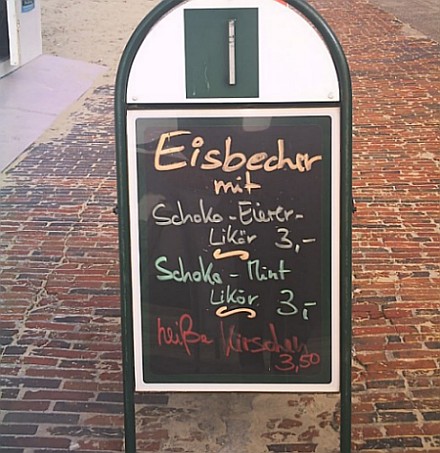 Eisbecher
mit
Schoko-Eierer-
Likör 3,-
Schoko-Mint
Likör 3,-
heiße Kirschen
3,50